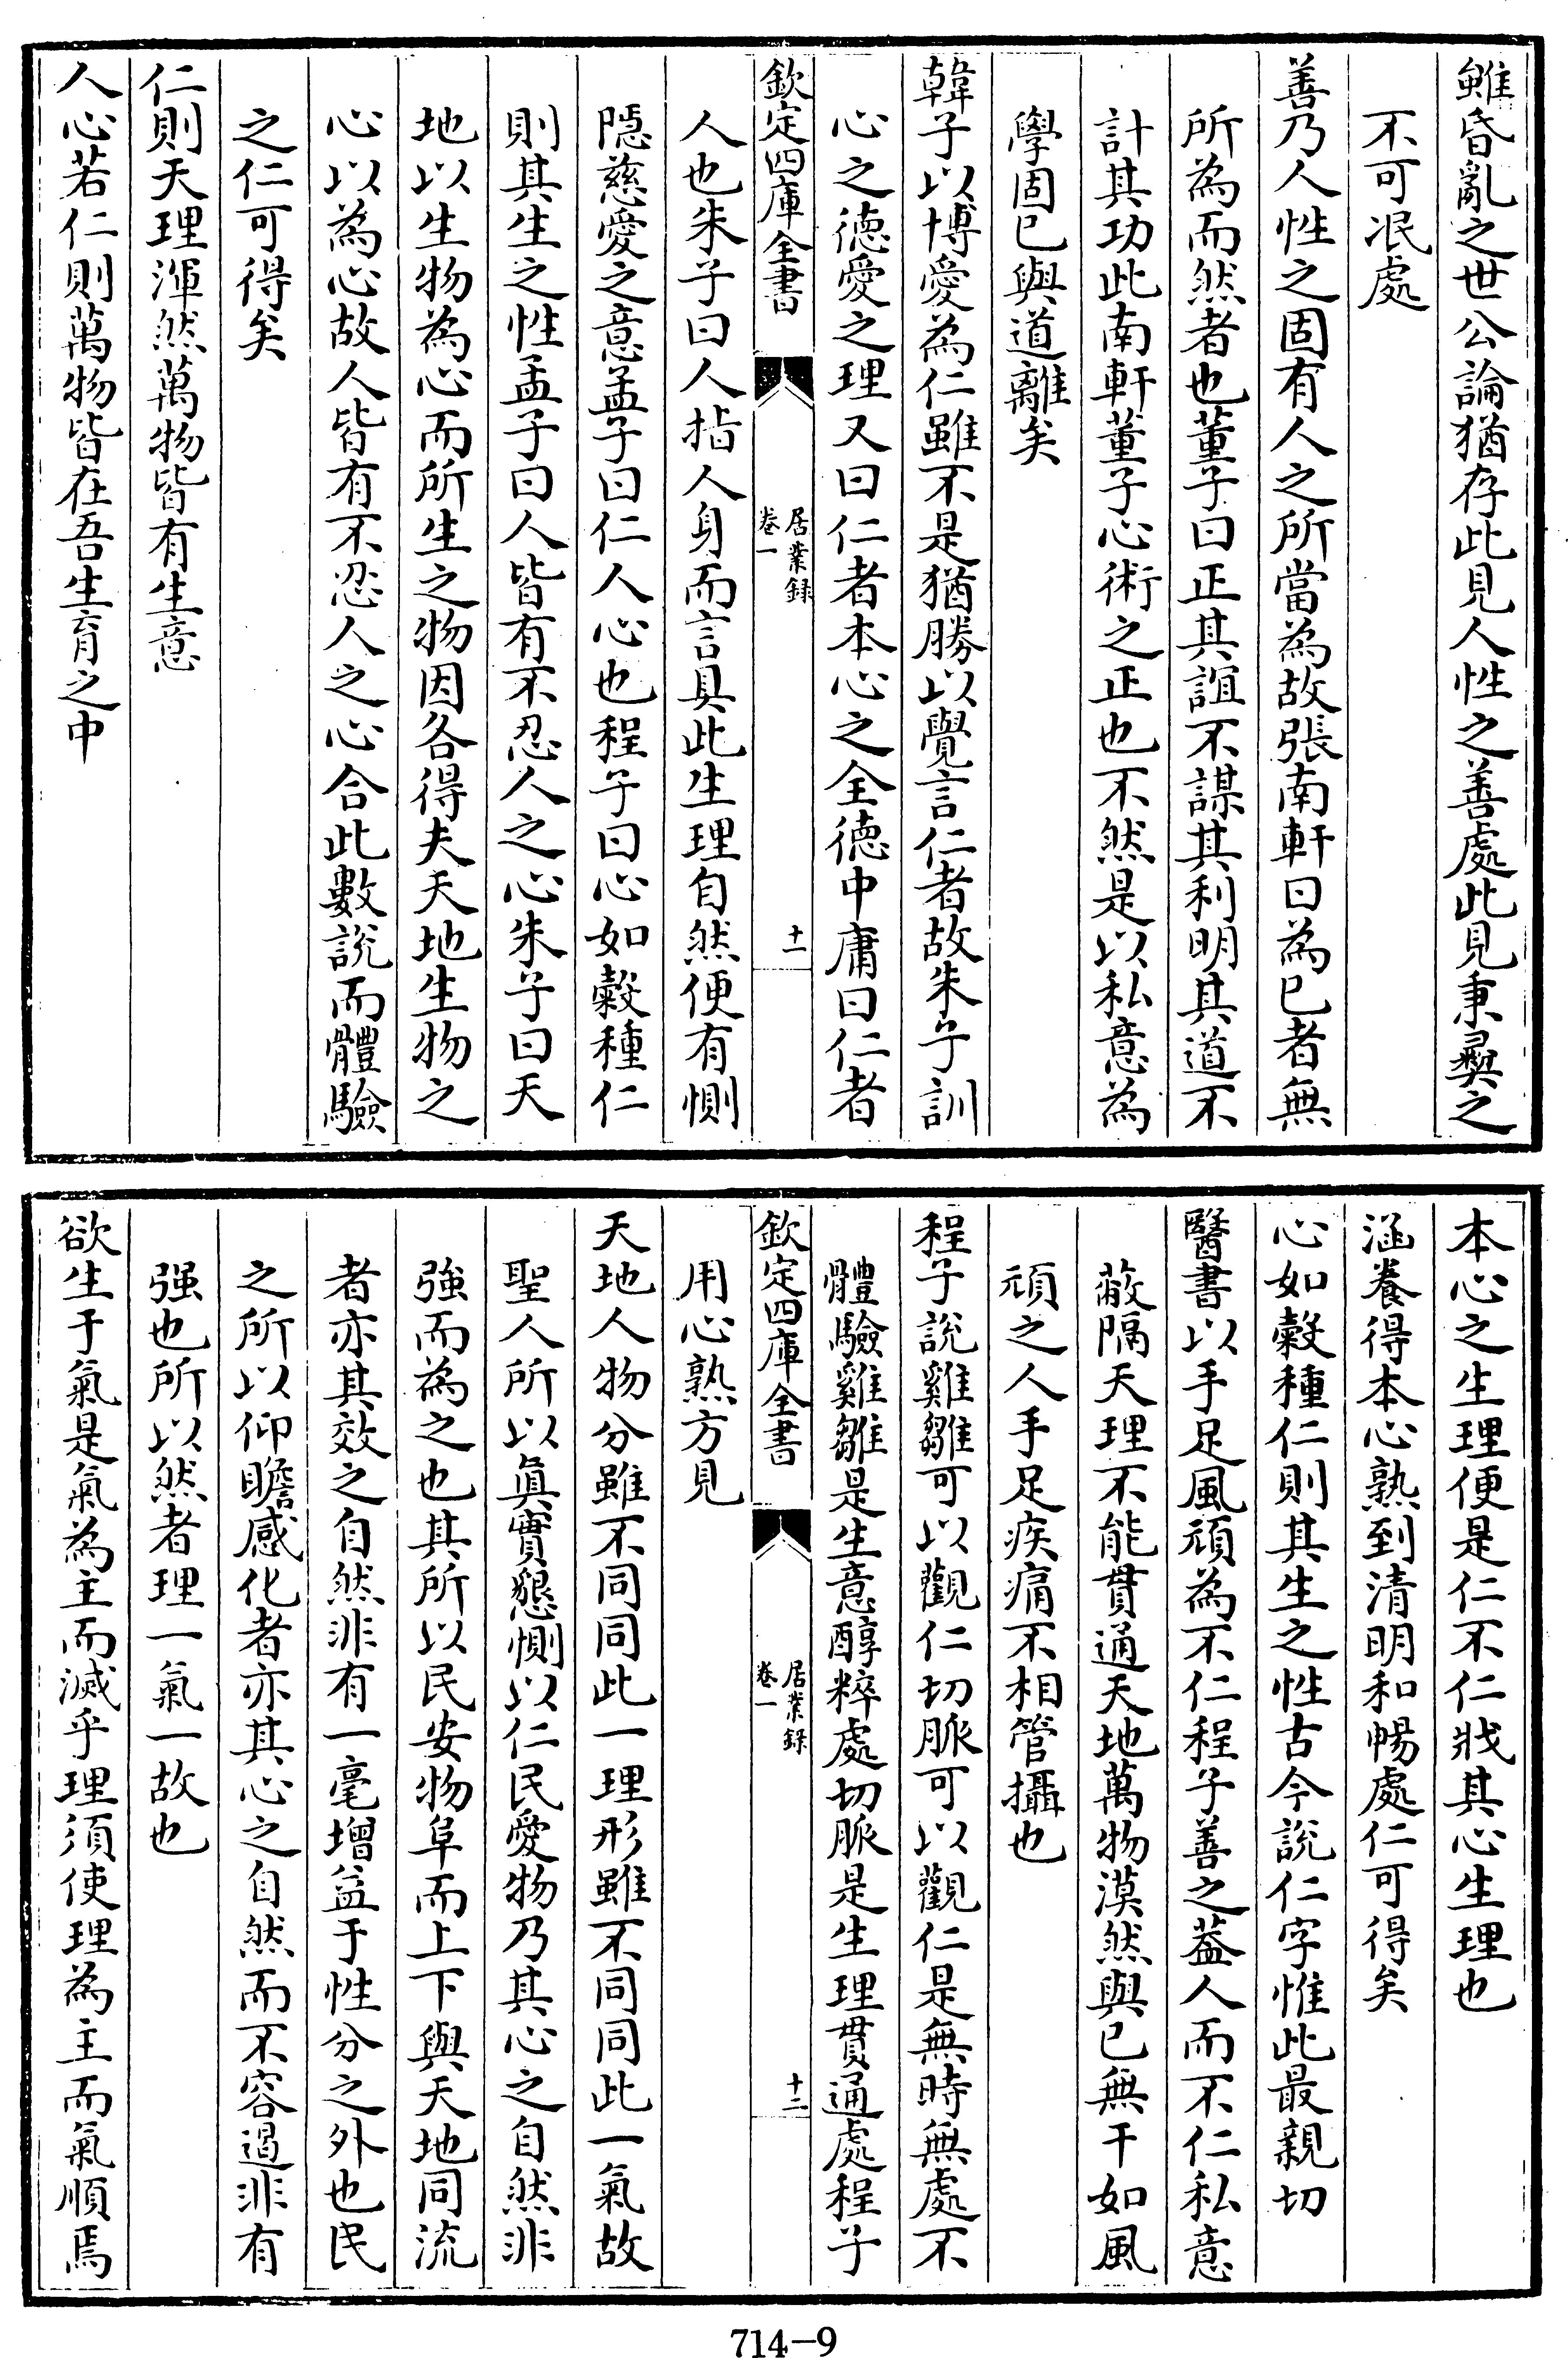 雖昏亂之世公論猶存此見人性之善處此見秉彝之
不可冺處
善乃人性之固有人之所當為故張南軒曰為已者無
所為而然者也董子曰正其誼不謀其利明其道不
計其功此南軒董子心術之正也不然是以私意為
學固已與道離矣
韓子以博愛為仁雖不是猶勝以覺言仁者故朱子訓
心之徳愛之理又曰仁者本心之全徳中庸曰仁者
欽定四庫全書
居業録
卷一
十一
人也朱子曰人指人身而言具此生理自然便有惻
隠慈愛之意孟子曰仁人心也程子曰心如穀種仁
則其生之性孟子曰人皆有不忍人之心朱子曰天
地以生物為心而所生之物因各得夫天地生物之
心以為心故人皆有不忍人之心合此數說而體驗
之仁可得矣
仁則天理渾然萬物皆有生意
人心若仁則萬物皆在吾生育之中
本心之生理便是仁不仁戕其心生理也
涵養得本心熟到清明和暢處仁可得矣
心如穀種仁則其生之性古今說仁字惟此最親切
醫書以手足風頑為不仁程子善之葢人而不仁私意
蔽隔天理不能貫通天地萬物漠然與已無干如風
頑之人手足疾痛不相管攝也
程子說雞雛可以觀仁切脈可以觀仁是無時無處不
體驗雞雛是生意醇粹處切脈是生理貫通處程子
欽定四庫全書
居業録
卷一
十二
用心熟方見
天地人物分雖不同同此一理形雖不同同此一氣故
聖人所以眞實懇惻以仁民愛物乃其心之自然非
強而為之也其所以民安物阜而上下與天地同流
者亦其效之自然非有一毫增益于性分之外也民
之所以仰瞻感化者亦其心之自然而不容遏非有
强也所以然者理一氣一故也
欲生于氣是氣為主而滅乎理須使理為主而氣順焉
714-9